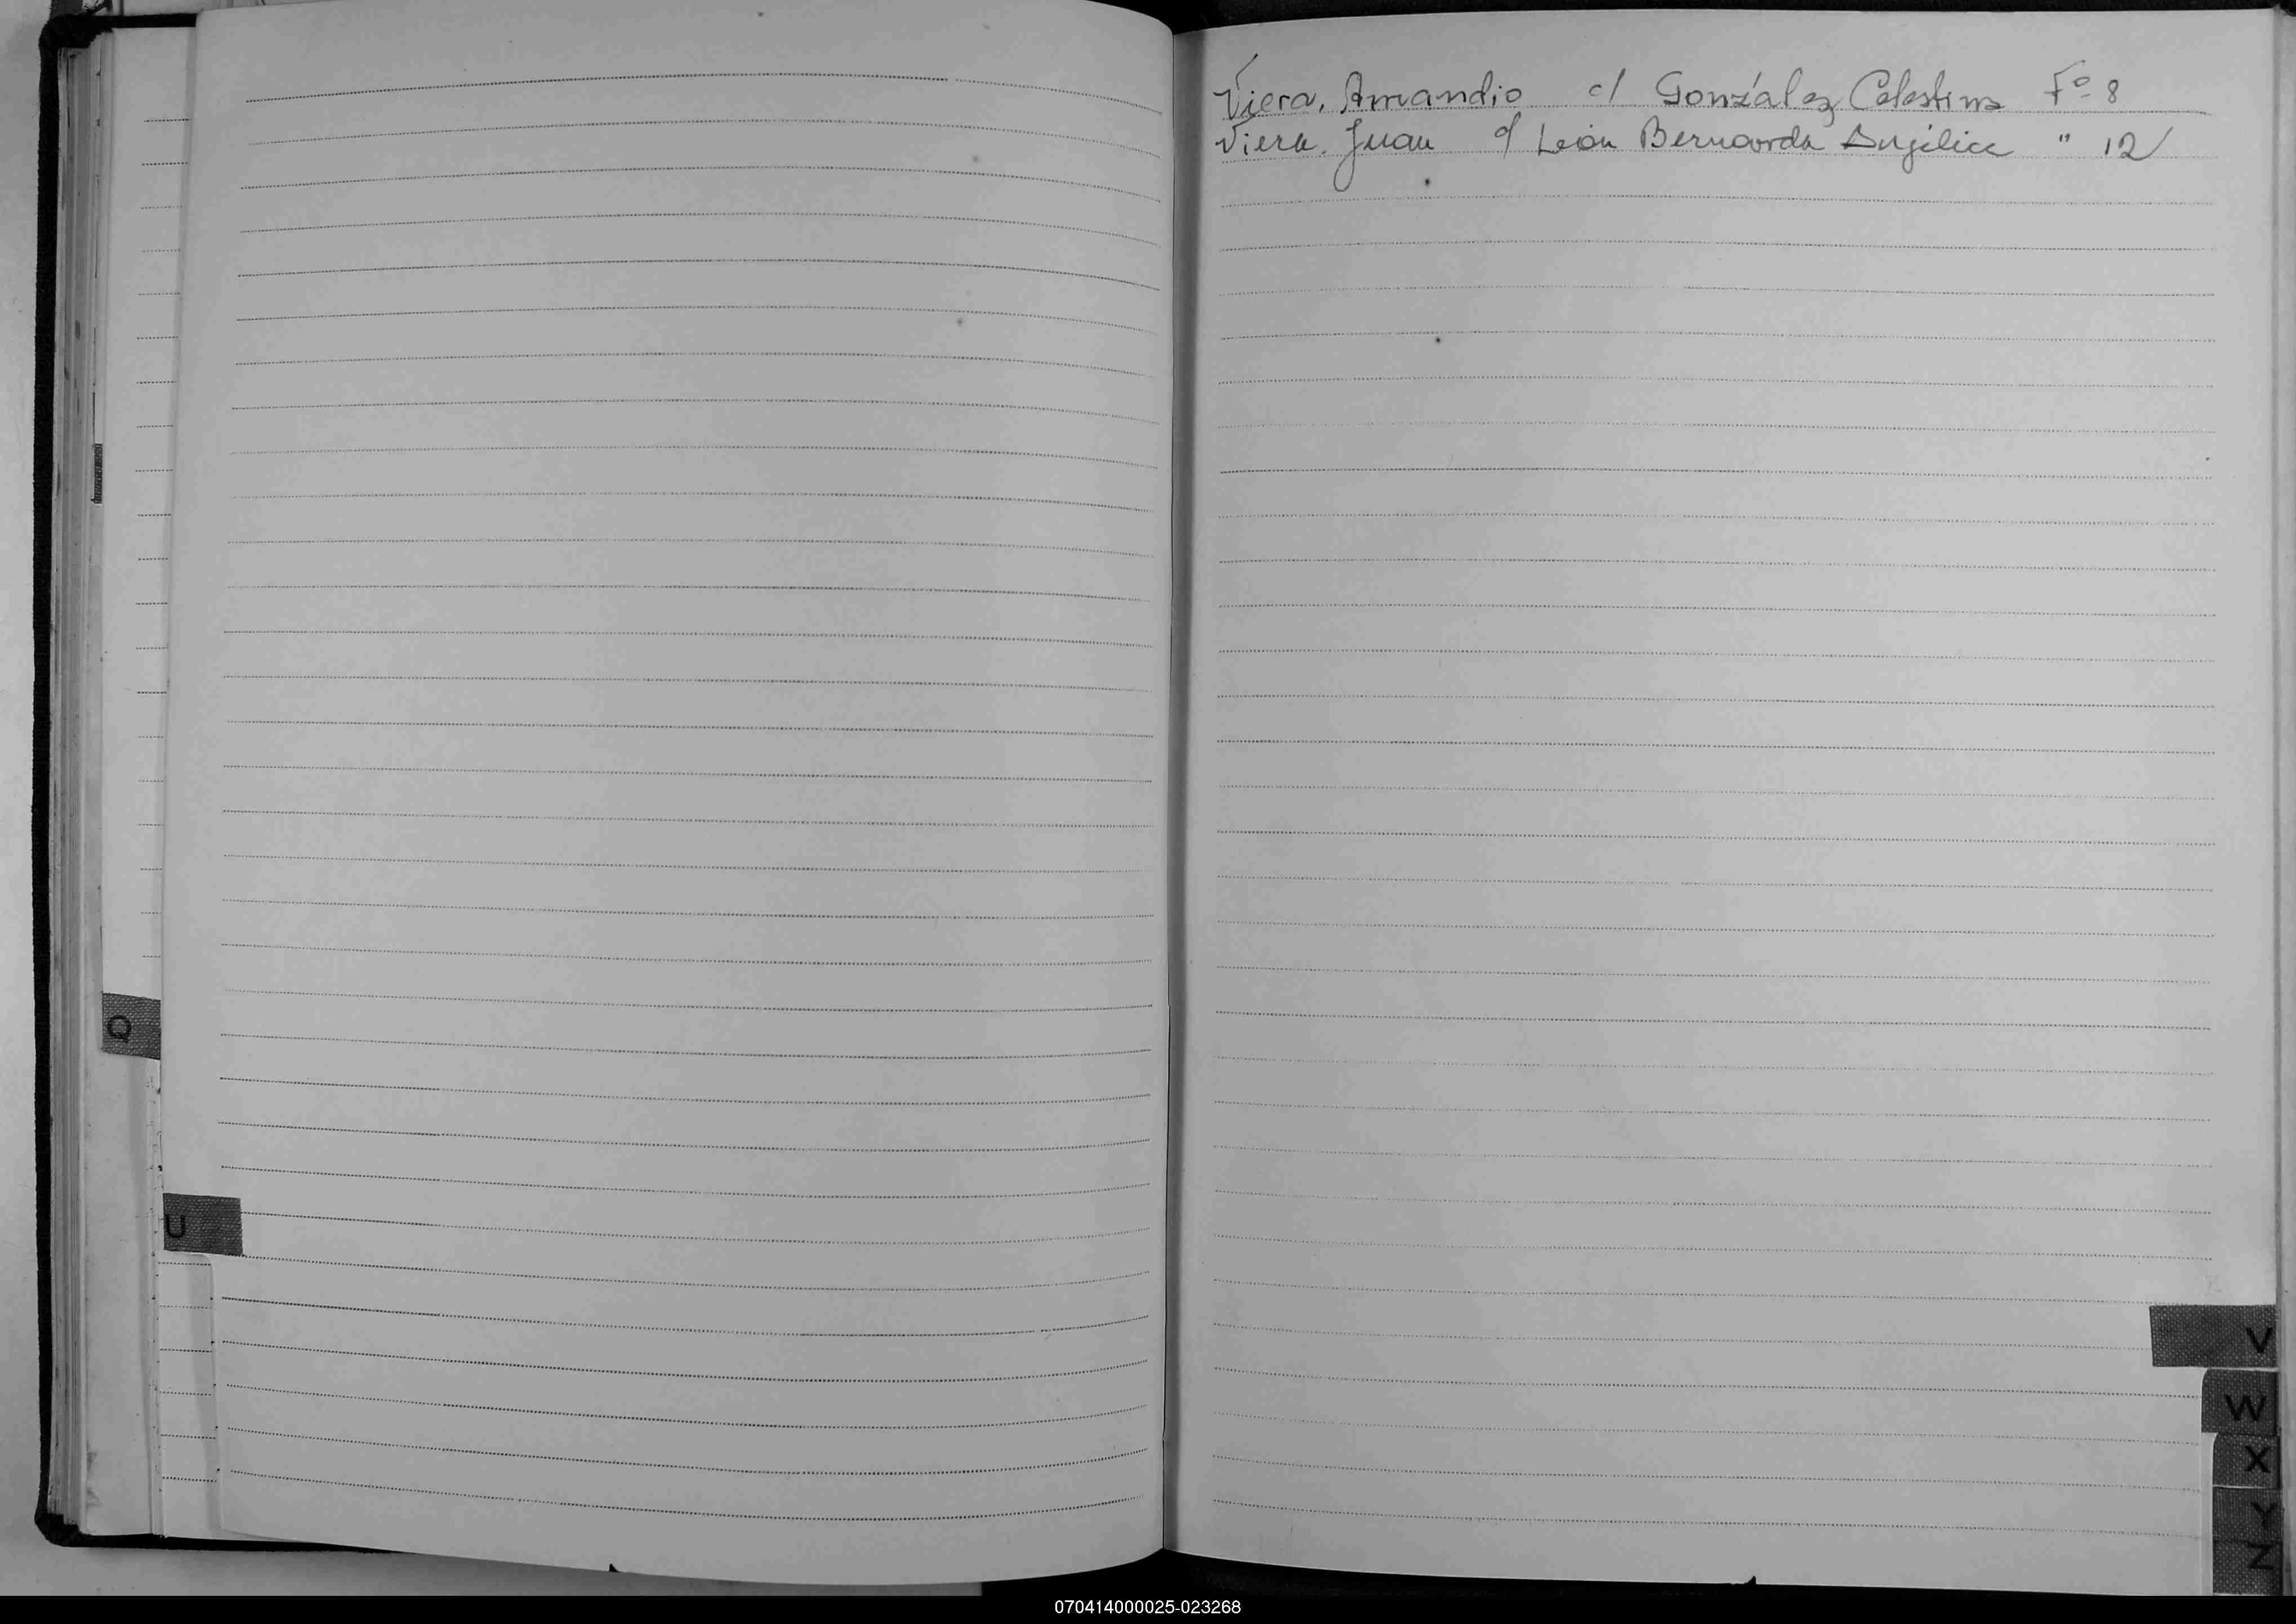 Viera, Amandio c/ González Celestina Fº 8
Viera, Juan c/ León Bernarda Angélica " 12
Q
U
V
W
X
Y
Z
070414000025-023268